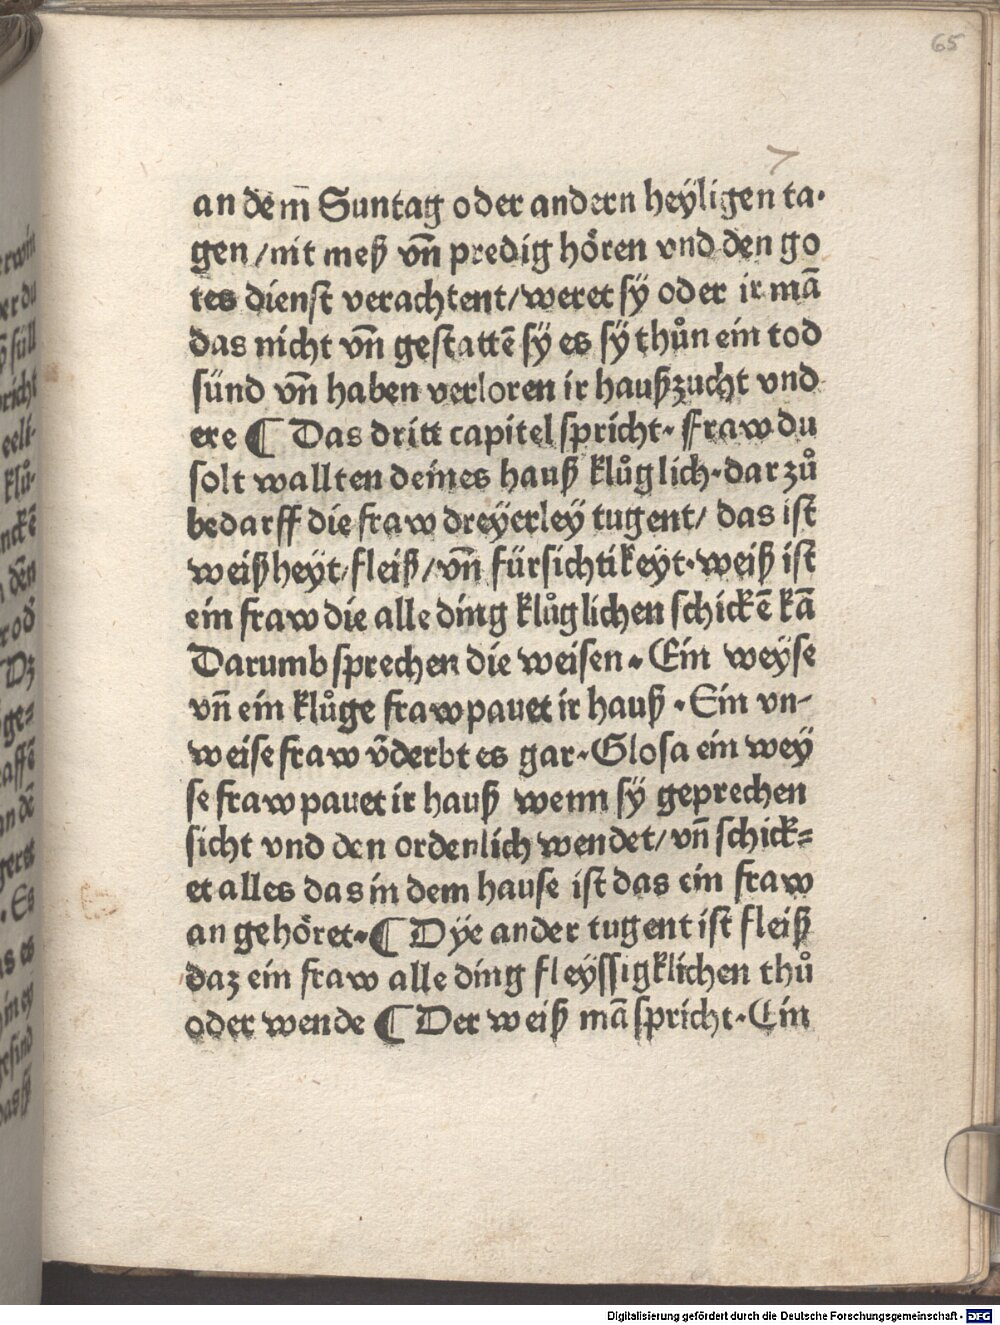 65
an dem̄ Suntag oder andern heÿligen ta·
gen/nit meß vn̄ predig hören vnd den go
tes dienst verachtent/weret sÿ oder ir mā
das nicht vn̄ gestattē sÿ es sÿ thůn ein tod
sünd vn̄ haben verloren ir haußzucht vnd
ere ¶ Das dritt capitel spricht· Fraw du
solt wallten deines hauß klůglich·dar zů
bedarff die fraw dreÿerleÿ tugent/ das ist
weißheÿt/fleiß/vn̄ fürsichtikeÿt·weiß ist
ein fraw die alle ding klůglichen schickē kā
Darumb sprechen die weisen· Ein weÿse
vn̄ ein klůge fraw pauet ir hauß ·Ein vn-
weise fraw v̄derbt es gar·Glosa ein weÿ
se fraw pauet ir hauß wenn sÿ geprechen
sicht vnd den ordenlich wendet/vn̄ schick=
et alles das in dem hause ist das ein fraw
an gehöret·¶ Dÿe ander tugent ist fleiß
daz ein fraw alle ding fleÿssigklichen thů
oder wende ¶ Der weiß mā spricht·Ein
Digitalisierung gefördert durch die Deutsche Forschungsgemeinschaft - DFG